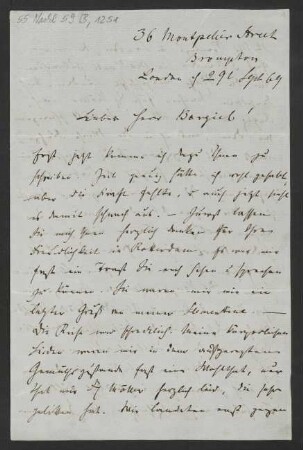 55 Nachl 59 B, 1251
36 Montpelier Street
Brompton
London d 29t Sept 69
Lieber Herr Bargiel!
Erst jetzt komme ich dazu Ihnen zu
schreiben. Zeit genug hätte ich wohl gehabt,
aber die Kraft fehlte, u auch jetzt sieht
es damit schwach aus. — Zuerst lassen
Sie mich Ihnen herzlich danken für Ihre
Freundlichkeit in Rotterdam, es war mir
fast ein Trost Sie noch sehen u sprechen
zu können. Sie waren mir wie ein
letzter Gruß an meine
Die Reise war schrecklich. Meine körperlichen
Leiden waren mir in dem aufgeregten
Gemüthszustande fast eine Wohlthat, nur
that mir herzlich leid, die sehr
gelitten hat. Wir landeten erst gegen